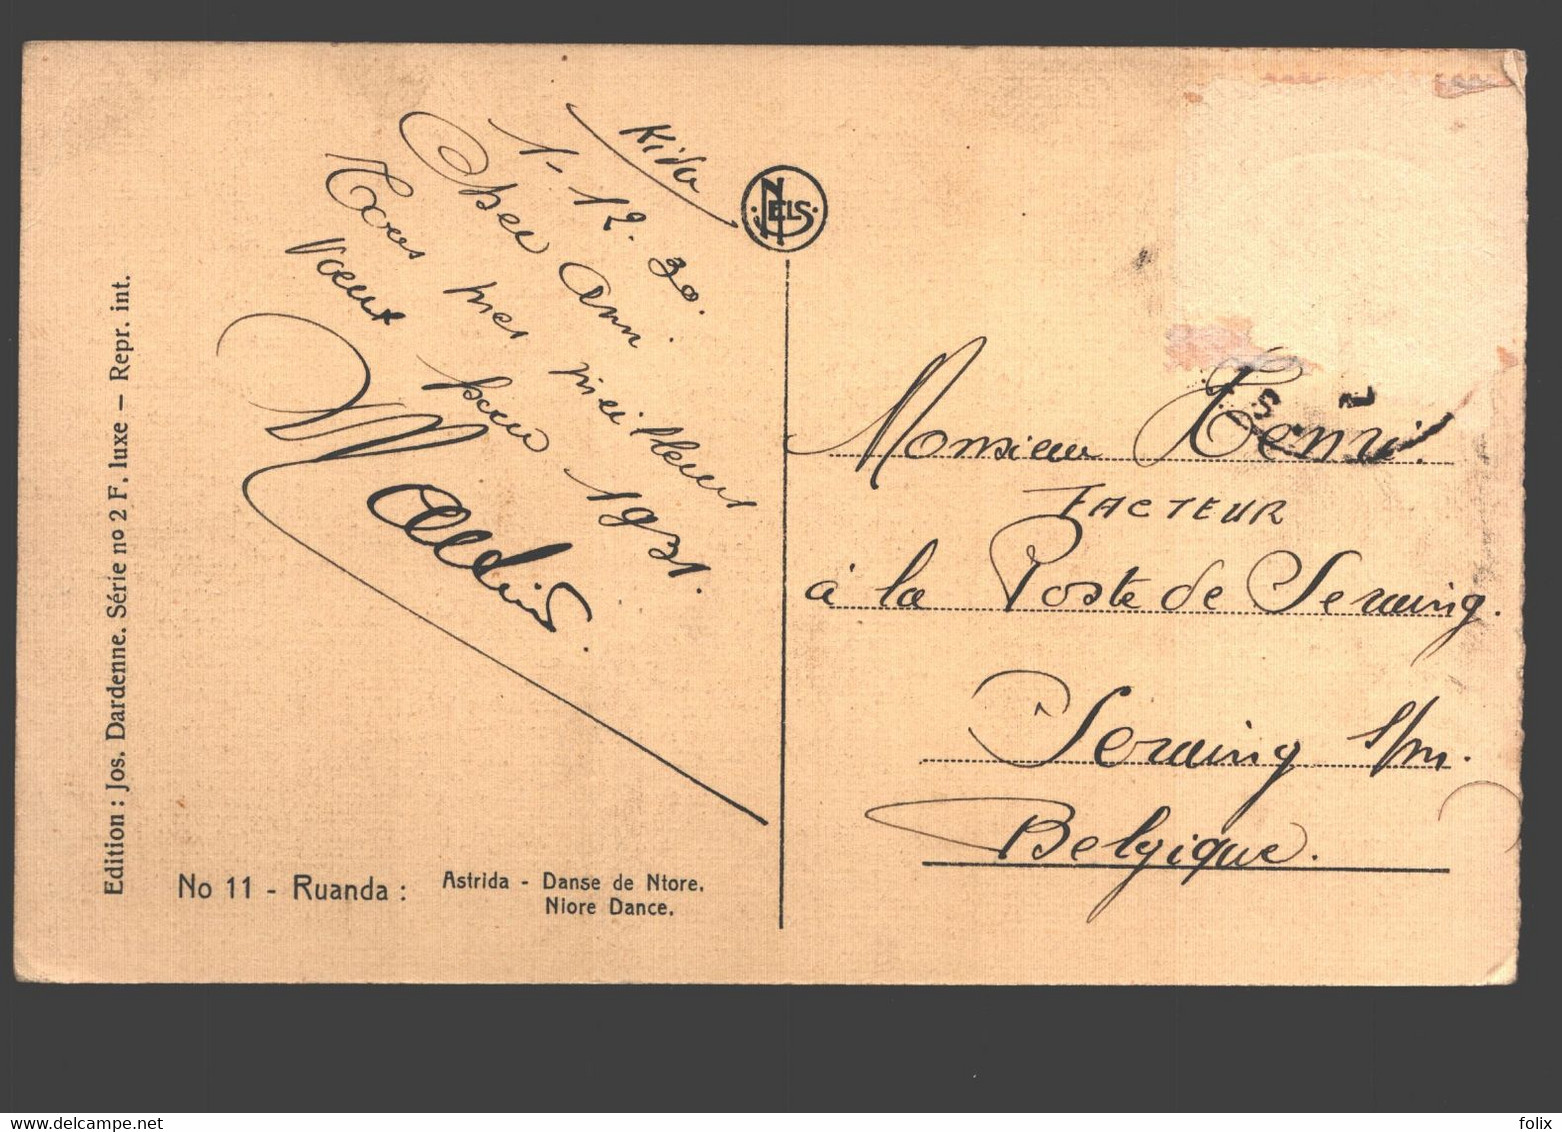 Kivu
1-12.30.
Cher Ami.
Tous mes meilleurs
Voeux pour 1931.
NELS
Monsieur Henri.
FACTEUR
à la Poste de Seraing.
Seraing s/m.
Belgique.
Edition : Jos. Dardenne. Série nº 2 F. luxe — Repr. int.
No 11 - Ruanda : Astrida - Danse de Ntore.
Niore Dance.
felix